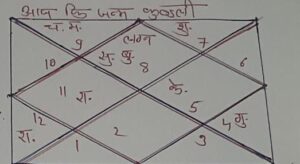 आप कि जन्म कुंडली
च. मं. शु.
9 लग्न 7
10 सु. बु. 6
8
11 श. के.
5
12 4 गु.
रा. 2 3
1